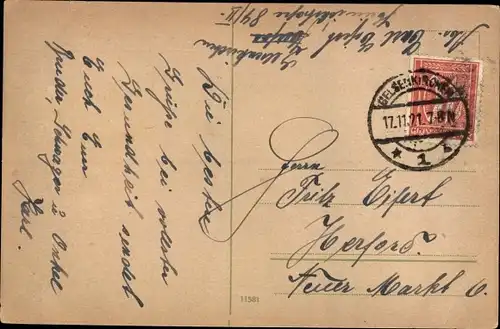 Die besten
Grüße bei vollster
Gesundheit sendet
Euch Euer
Bruder, Schwager u. Onkel
Karl.
Gelsenkirchen
GELSENKIRCHEN
17.11.21. 7-8 N
* 1
Herrn
Fritz Eifert
Herford.
Neuer Markt 6.
11581